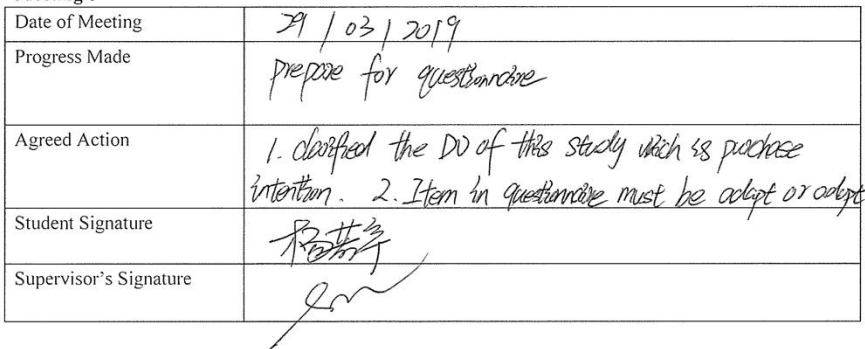 Date of Meeting
29 / 03 / 2019
Progress Made
prepare for questionnaire
Agreed Action
1. clarified the DV of this study which is purchase
intention. 2. Item in questionnaire must be adopt or adapt
Student Signature
Supervisor's Signature